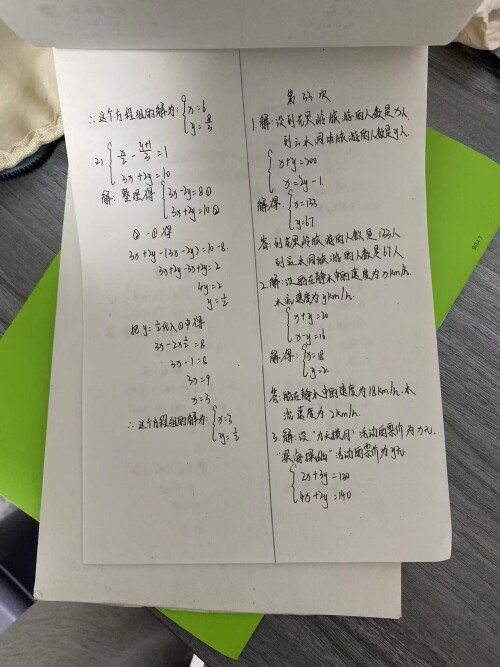 ∴这个方程组的解为:{x=6
y=8/3
2) {x/2 - (y+1)/3 = 1
3x+2y=10
解: 整理得 {3x-2y=8①
3x+2y=10②
②-①得
3x+2y-(3x-2y)=10-8
3x+2y-3x+2y=2
4y=2
y=1/2
把y=1/2代入①中得
3x-2×1/2=8
3x-1=8
3x=9
x=3
∴这个方程组的解为:{x=3
y=1/2
第33次
1.解:设到花果岭旅游的人数是x人,
到云水洞旅游的人数是y人.
{x+y=200
x=2y-1
解得:{x=133
y=67
答:到花果岭旅游的人数是133人
到云水洞旅游的人数是67人
2.解:设船在静水中的速度为xkm/h,
水流速度为ykm/h.
{x+y=20
x-y=16
解得:{x=18
y=2
答:船在静水中的速度为18km/h,水
流速度为2km/h.
3.解:设"九天揽月"活动的票价为x元.
"深海探幽"活动的票价为y元
{2x+3y=130
4x+2y=140